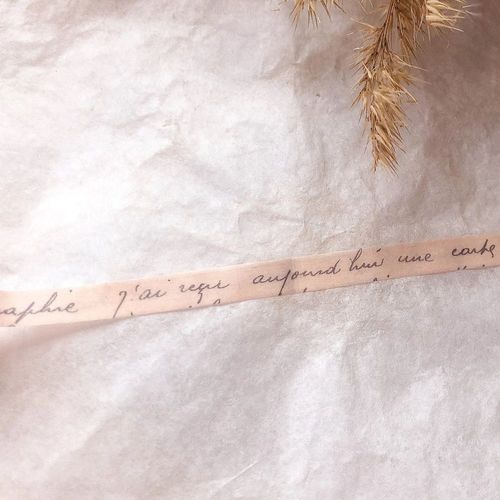 aphie J'ai reçu aujourd'hui une carte